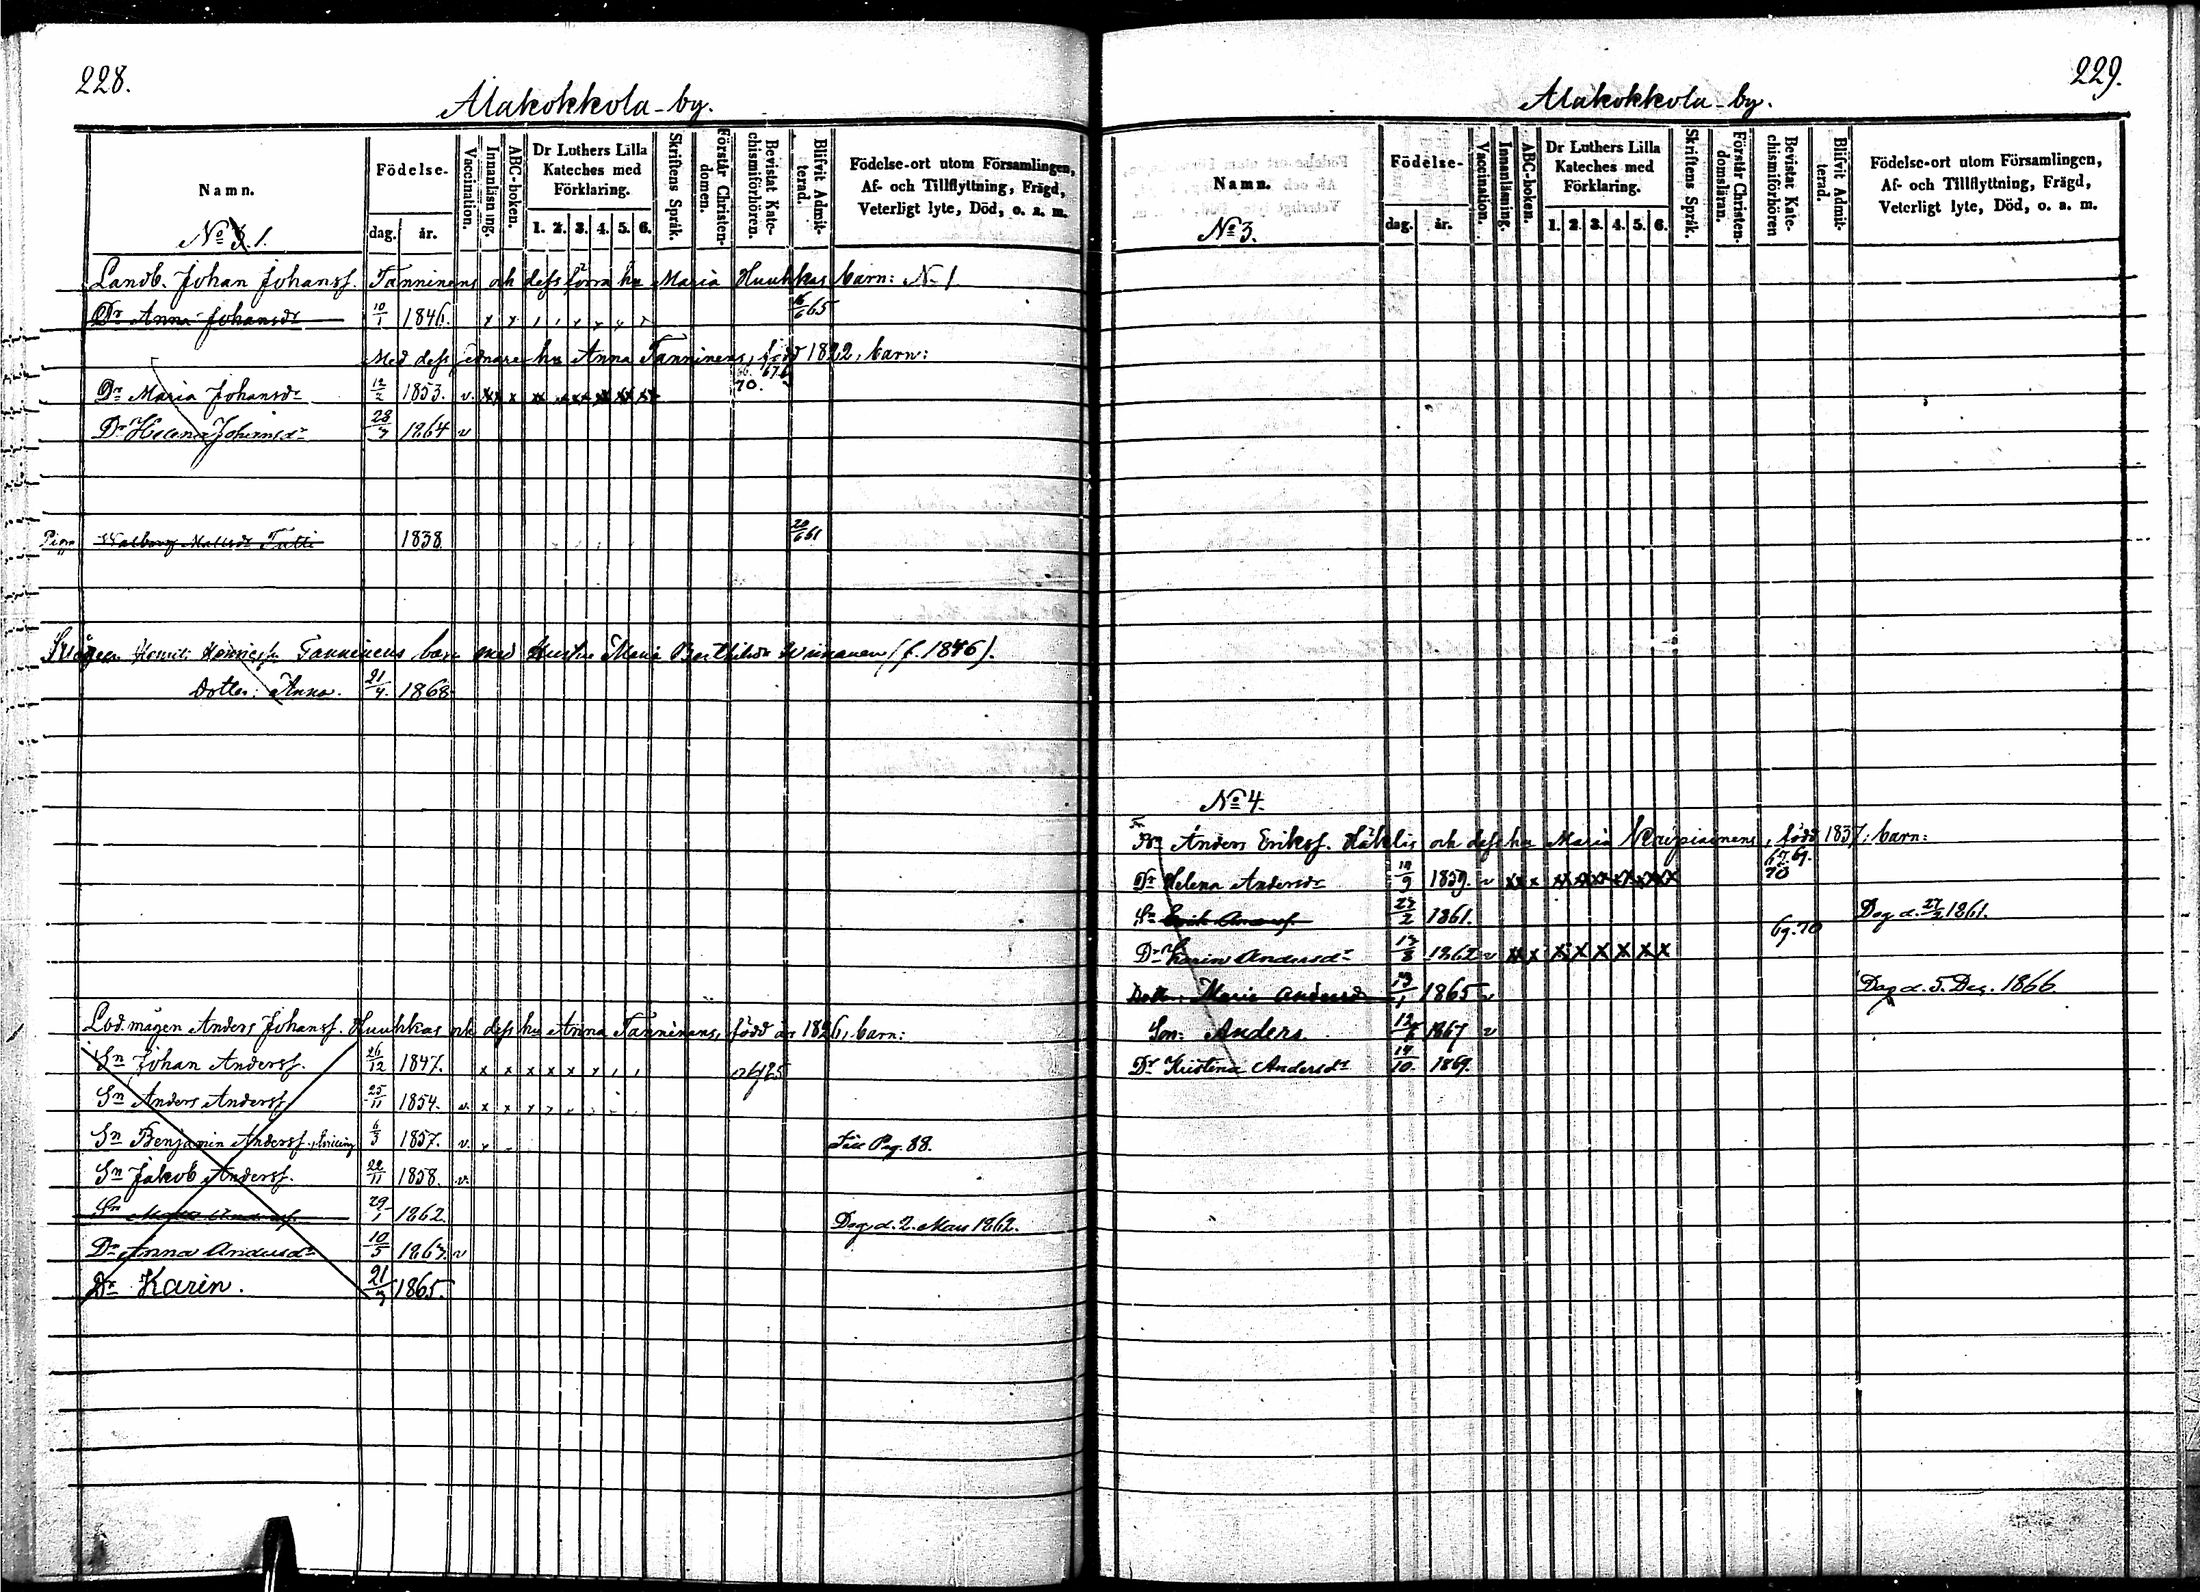 228.
Alakokkola-by.
Namn.
Födelse-
dag.
år.
Vaccination.
Innanläsning.
ABC-boken.
Dr Luthers Lilla Kateches med Förklaring.
1. 2. 3. 4. 5. 6.
Skriftens Språk.
Förstår Christendomen.
Bevistat Katechismiförhören.
Blifvit Admitterad.
Födelse-ort utom Församlingen,
Af- och Tillflyttning, Frägd,
Veterligt lyte, Död, o. a. m.
No 1.
Landb. Johan Johanss. Tanninens och dess förra hu Maria Huuhkas barn: N. 1
Dr Anna Johansdr 10/1 1846. x x 16/6 65
Med dess senare hu Anna Tanninens, född 1822, barn:
70.
Dr Maria Johansdr 12/2 1853. v.
Dr Helena Johansdr 28/3 1864 v
Piga Walborg Mattsdr Tatti 1838 20/6 61
Tanninens barn med hustru Maria (f. 1846).
Dotter: Anna. 21/4. 1868
Lod. mågen Anders Johanss. Huuhkas och dess hu Anna Tanninens, född år 1826, barn:
Sn Johan Anderss. 26/12 1847. x x x x x x
Sn Anders Anderss. 25/11 1854. v. x x x
Sn Benjamin Anderss. 6/3 1857. v. x Till Pag. 88.
Sn Jakob Anderss. 22/11 1858. v.
Sn 29/1 1862. Dog d. 2. Mars 1862.
Dr Anna Andersdr 10/5 1863. v
Dr Karin. 21/3 1865.
229.
Alakokkola-by.
Namn.
Födelse-
dag.
år.
Vaccination.
Innanläsning.
ABC-boken.
Dr Luthers Lilla Kateches med Förklaring.
1. 2. 3. 4. 5. 6.
Skriftens Språk.
Förstår Christendomsläran.
Bevistat Katechismiförhören
Blifvit Admitterad.
Födelse-ort utom Församlingen,
Af- och Tillflyttning, Frägd,
Veterligt lyte, Död, o. a. m.
No 3.
No 4.
Anders Erikss. Häklis och dess hu Maria Karpiainens, född 1837, barn:
67. 69.
70
Dr Helena Andersdr 10/9 1859. v
Sn Erik Anderss. 1861. Dog d. 27/2 1861.
69. 70
Dr Karin Andersdr 1862 v x x x x x x
Dotter: Maria Andersdr 1865 v Dog d. 5. Dec. 1866.
Son: Anders. 1867 v
Dr Kristina Andersdr 14/10. 1869.